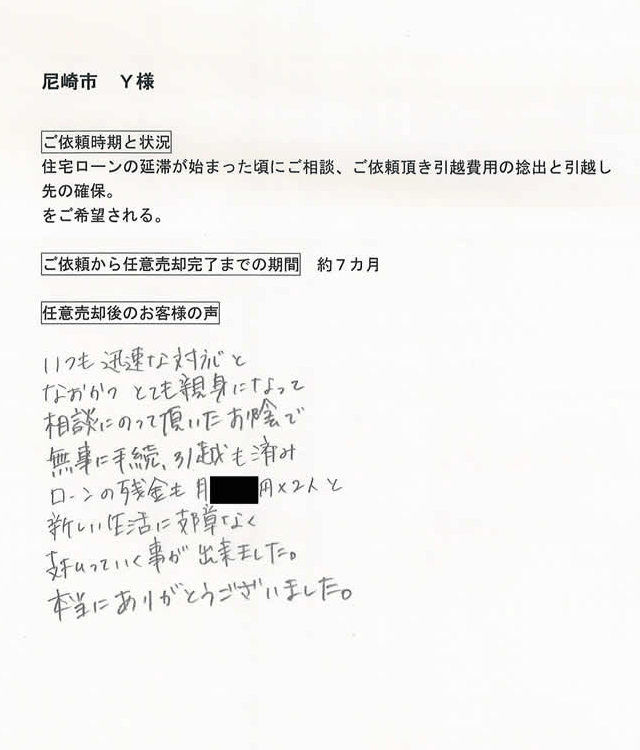 尼崎市　Ｙ様
ご依頼時期と状況
住宅ローンの延滞が始まった頃にご相談、ご依頼頂き引越費用の捻出と引越し
先の確保。
をご希望される。
ご依頼から任意売却完了までの期間　約７カ月
任意売却後のお客様の声
いつも迅速な対応と
なおかつ とても親身になって
相談にのって頂いたお陰で
無事に手続、引越も済み
ローンの残金も月 円×2人と
新しい生活に支障なく
支払っていく事が出来ました。
本当にありがとうございました。